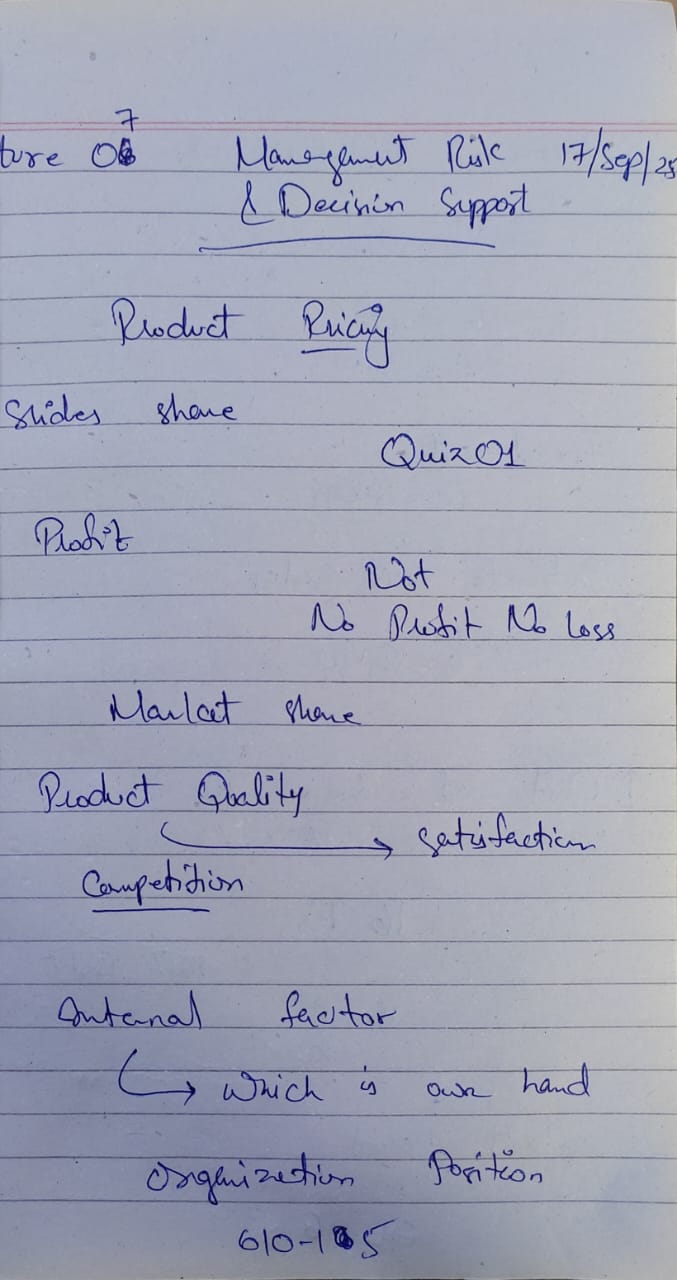 ture 07
Management Risk 17/Sep/25
& Decision Support
Product Pricing
Slides share
Quiz 01
Profit
Not
No Profit No loss
Market share
Product Quality
→ Satisfaction
Competition
Internal factor
→ which is own hand
Organization Position
610-1 5